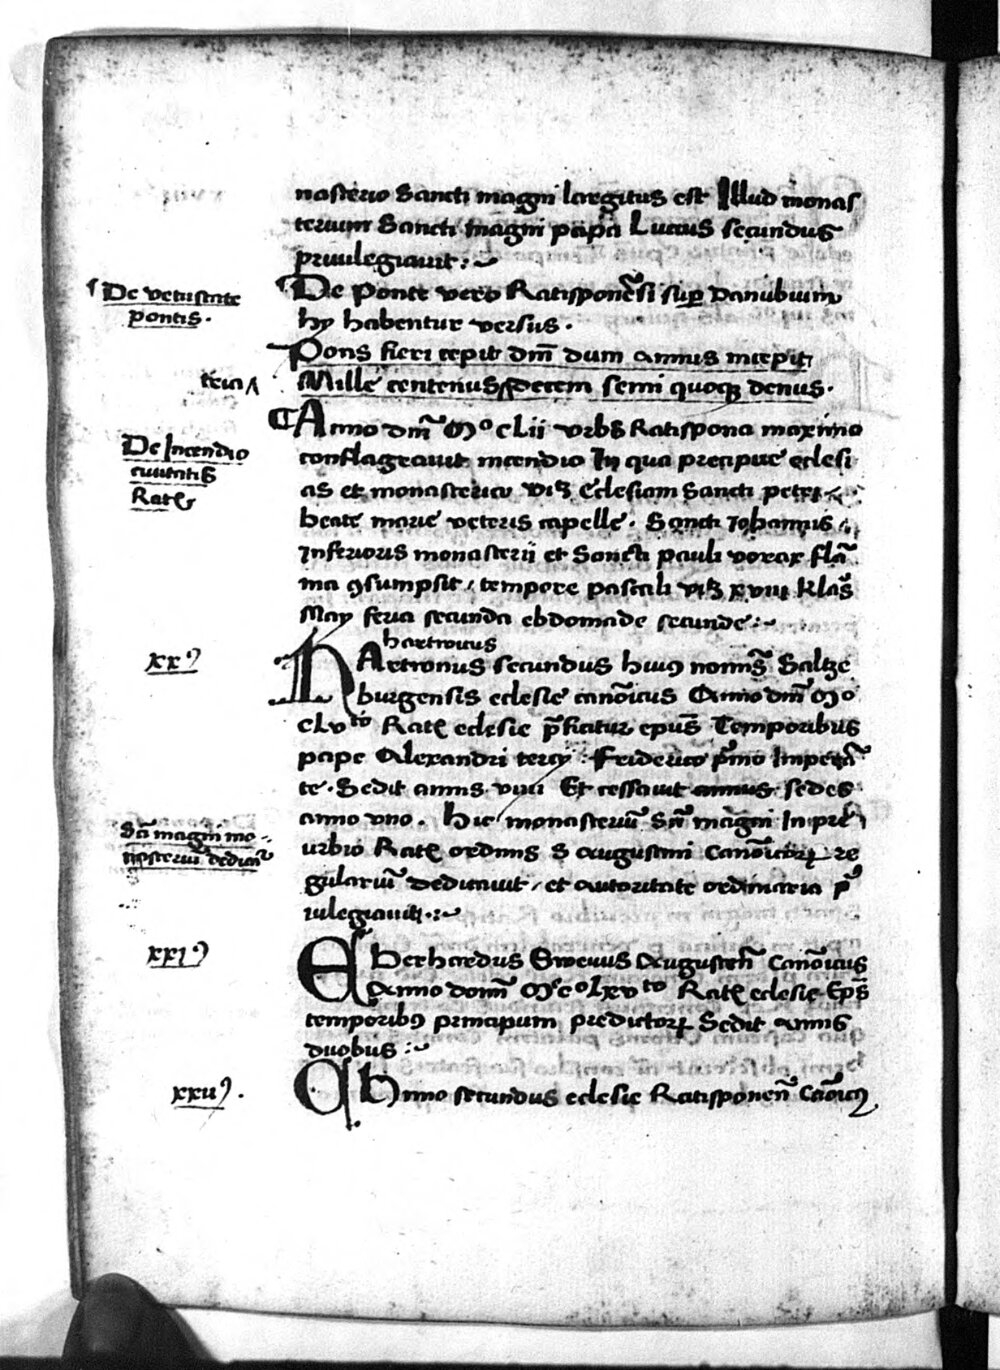 nasterio Sancti magni largitus est Illud monas
terium Sancti magni papa Lucius secundus
priuilegiauit :~
De vetustate
pontis .
De Ponte vero Ratisponēsi sup Danubium
hy habentur versus .
Pons fieri cepit dm̄ dum annus incepit
terci ʌ
Mille centenus ʌ decem semi quoqꝫ denus .
De Incendio
ciuitatis
Ratꝭ
¶ Anno dm̄ Mº cLii vrbs Ratispona maximo
conflagrauit incendio In qua precipue eclesi
as et monasteria viꝫ Eclesiam Sancti petri
beate marie veteris capelle . Sancti Iohannis
Inferioris monasterii et Sancti pauli vorax flā
ma ꝯsumpsit / tempore pascali viꝫ xviii klas̄
May feria secunda ebdomade secunde :~
xxꝰ
hartwicus
HArtronus secundus huiꝰ nomīs Saltze
burgensis eclesie canōicus Anno dm̄ Mº
cLvto Ratꝭ eclesie p̄ficitur epūs Temporibus
pape Alexandri tercij . Friderico p̄mo Imperā
te . Sedit annis viiii Et cessauit annus sedes
anno vno . Hic monasteriū Sā magni In pre
sā magni mo
nasteriū dedicat̄
urbio Ratꝭ ordinis S Augustini Canōicorꝝ re
gulariū dedicauit / et autoritate ordinaria p̄
iuilegiauit :~
xxiꝰ
EBerhardus Sweuus Augusten̄ Canōicus
Anno domī Mº cº lxvto Ratꝭ eclesie Eps̄
temporibꝰ principum predictorꝝ Sedit annis
duobus :~
xxiiꝰ .
CHnno secundus eclesie Ratisponen̄ Cāoicꝰ